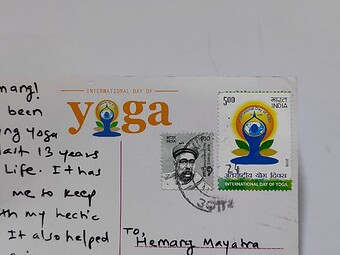 INTERNATIONAL DAY OF
yoga
been
yoga
last 13 years
Life. It has
me to keep
my hectic
It also helped
5.00 भारत
INDIA
अंतर्राष्ट्रीय योग दिवस
INTERNATIONAL DAY OF YOGA
To,
Hemang Mayatra